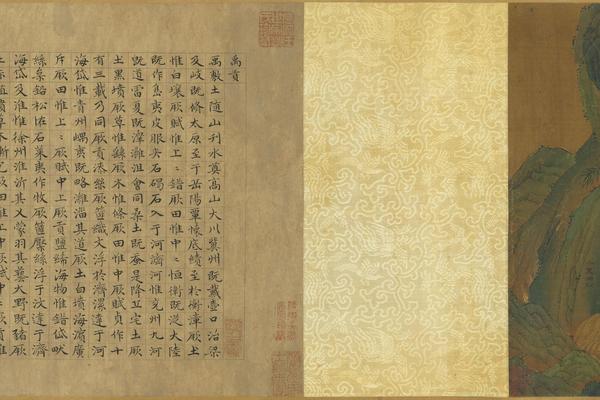 禹貢
禹敷土随山刊水奠高山大川冀州既載壺口治梁
及岐既脩太原至于岳陽覃懷底績至於衡漳厥土
惟白壤厥賦惟上〻錯厥田惟中〻恒衛既從大陸
既作島夷皮服夾右碣石入于河濟河惟兖州九河
既道雷夏既澤灉沮會同桑土既蚕是降丘宅土厥
土黑墳厥草惟繇厥木惟條厥田惟中厥賦貞作十
有三載乃同厥貢漆絲厥篚織文浮於濟漯達于河
海岱惟青州嵎夷既略濰淄其道厥土白墳海濱廣
斥厥田惟上〻厥賦中上厥貢鹽絺海物惟錯岱畎
絲枲鉛松怪石萊夷作牧厥篚檿絲浮于汶達于濟
海岱及淮惟徐州淮沂其乂蒙羽其藝大野既豬厥